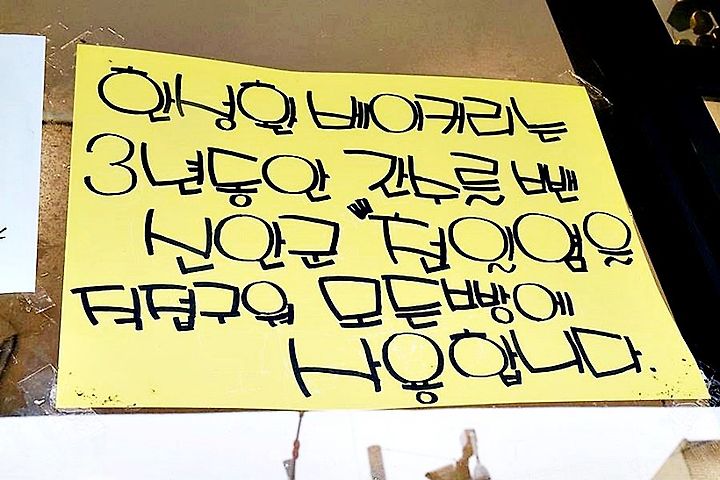 한성원 베이커리는
3년동안 간수를 뺀
신안군 "천일염을
직접구워 모든빵에
사용합니다.